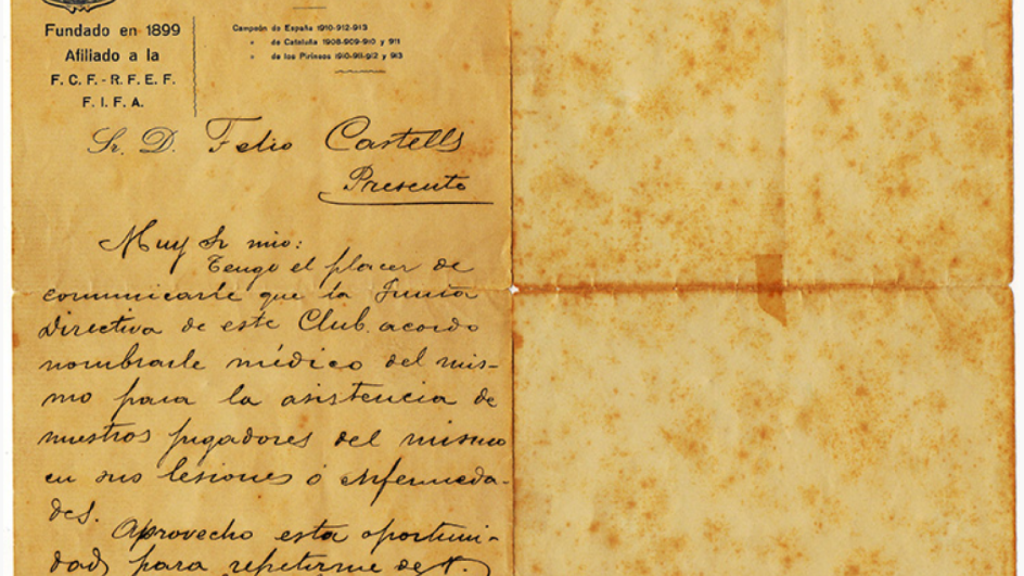 Fundado en 1899
Afiliado a la
F. C. F. - R. F. E. F.
F. I. F. A.
Campeón de España 1910-912-913
» de Cataluña 1908-909-910 y 911
» de los Pirineos 1910-911-912 y 913
Sr. D. Felio Castells
Presente
Muy Sr mio:
Tengo el placer de
comunicarle que la Junta
Directiva de este Club. acordo
nombrarle médico del mis-
mo para la asistencia de
nuestros jugadores del mismo
en sus lesiones ó enfermeda-
des.
Aprovecho esta oportuni-
dad para repetirme de V.